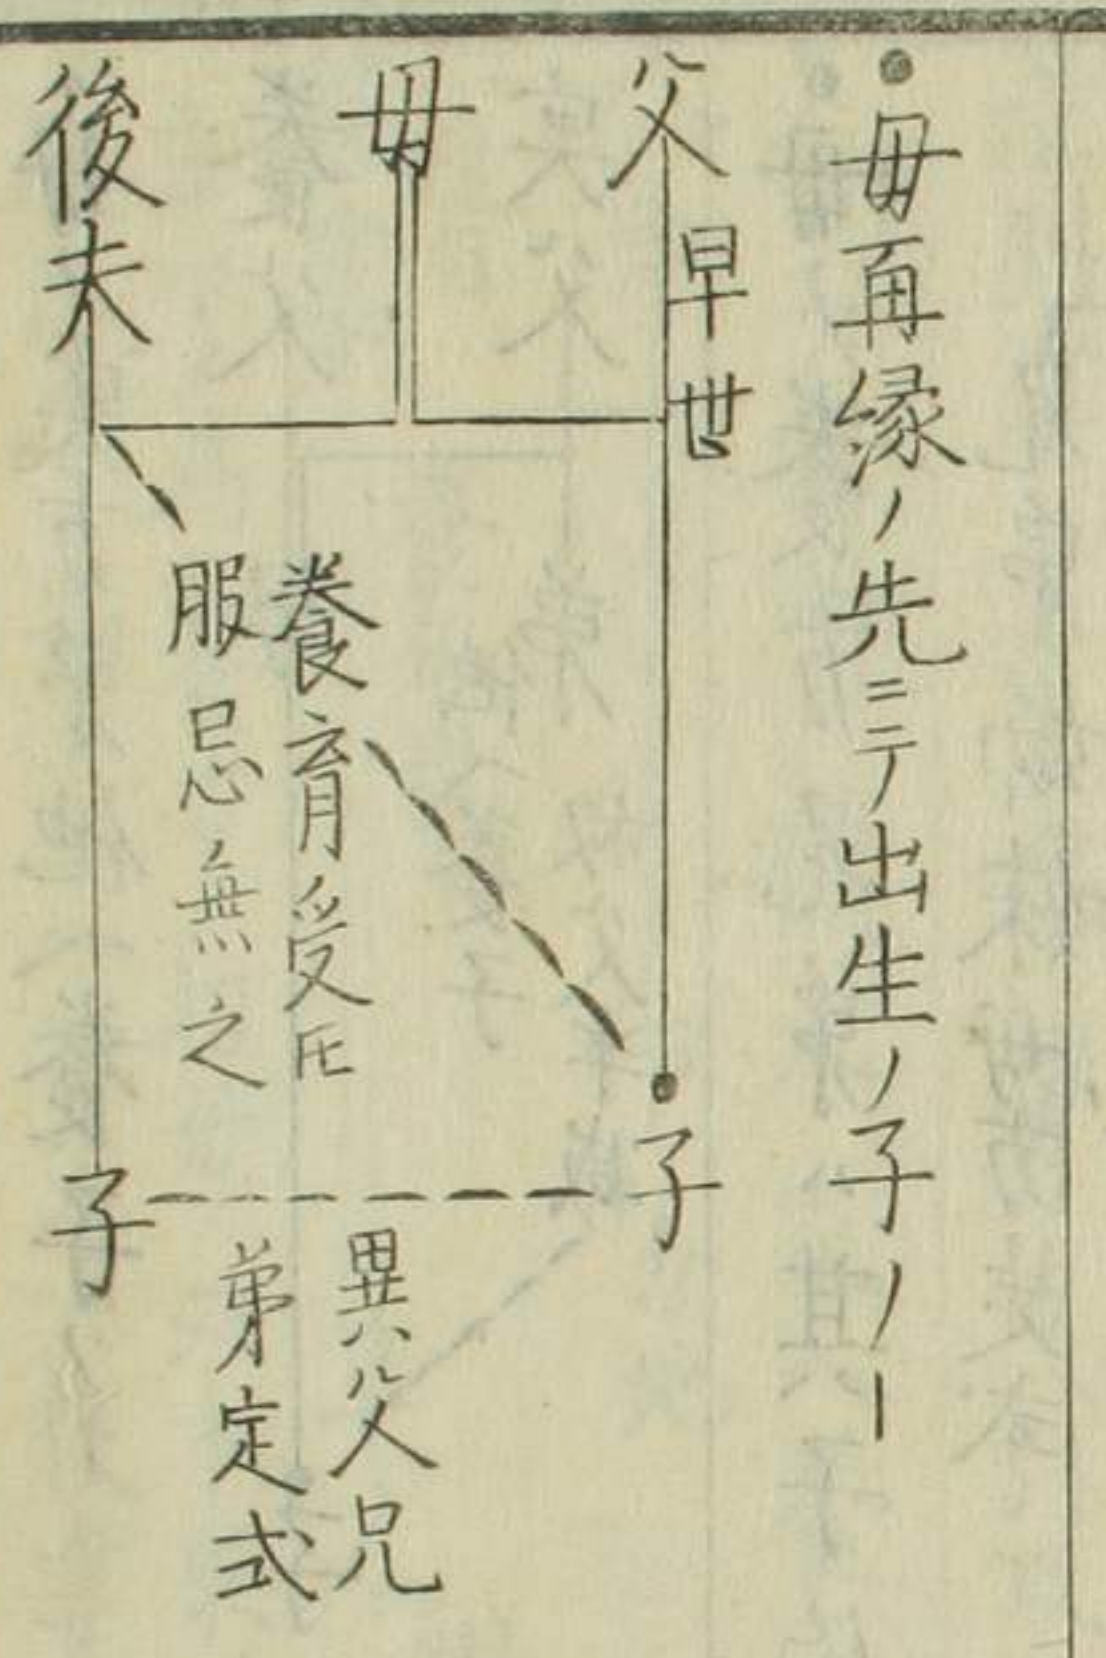 ・母再縁ノ先ニテ出生ノ子ノ一
父
早世
母
後夫
養育受𪜈
服忌無之
子
子
異父兄
弟定式